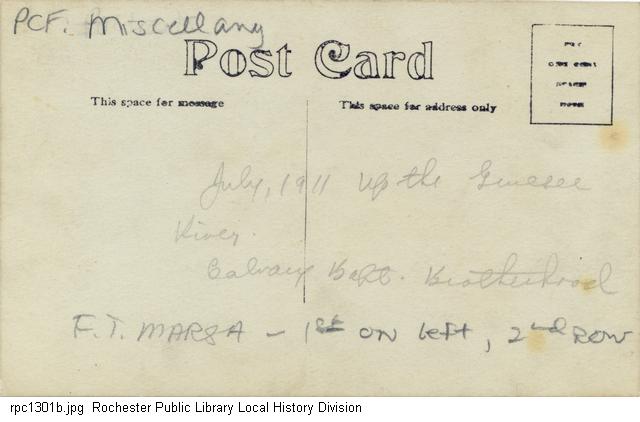 PCF. Miscellany
Post Card
This space for message
This space for address only
July, 1911 up the Genesee
River.
Calvary Bapt. Brotherhood
F.T. MARSA - 1st ON left, 2nd ROW
rpc1301b.jpg Rochester Public Library Local History Division